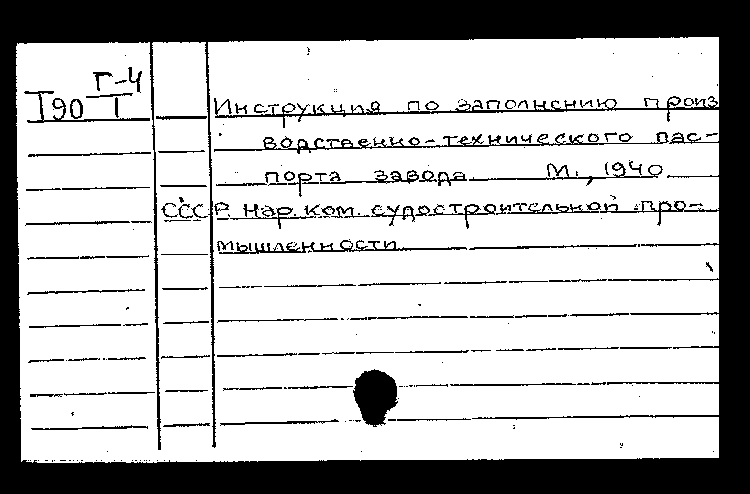 Г-4
I90 I
Инструкция по заполнению произ
водственно-технического пас-
порта завода. М., 1940
СССР. Нар. ком. судостроительной про-
мышленности